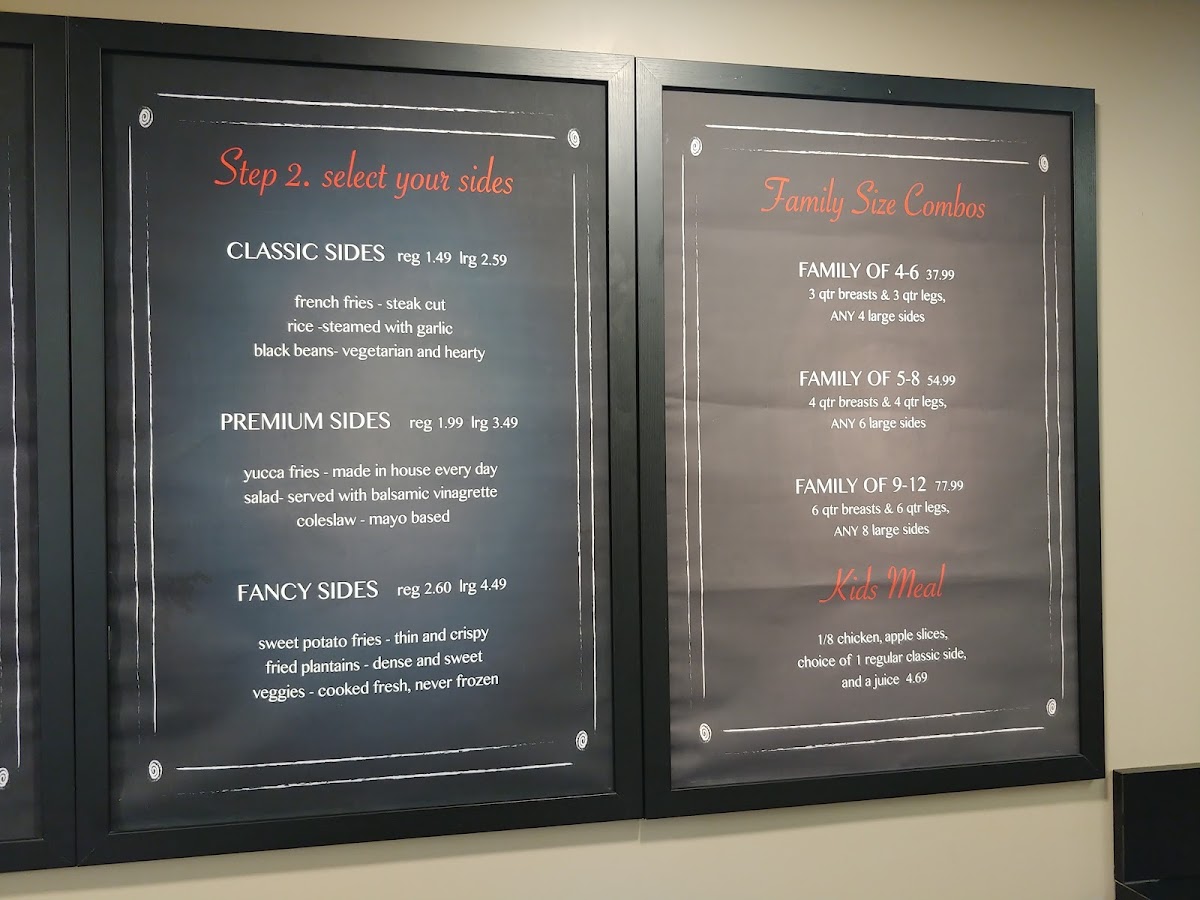 Step 2. select your sides
CLASSIC SIDES reg 1.49 lrg 2.59
french fries - steak cut
rice -steamed with garlic
black beans- vegetarian and hearty
PREMIUM SIDES reg 1.99 lrg 3.49
yucca fries - made in house every day
salad- served with balsamic vinagrette
coleslaw - mayo based
FANCY SIDES reg 2.60 lrg 4.49
sweet potato fries - thin and crispy
fried plantains - dense and sweet
veggies - cooked fresh, never frozen
Family Size Combos
FAMILY OF 4-6 37.99
3 qtr breasts & 3 qtr legs,
ANY 4 large sides
FAMILY OF 5-8 54.99
4 qtr breasts & 4 qtr legs,
ANY 6 large sides
FAMILY OF 9-12 77.99
6 qtr breasts & 6 qtr legs,
ANY 8 large sides
Kids Meal
1/8 chicken, apple slices,
choice of 1 regular classic side,
and a juice 4.69